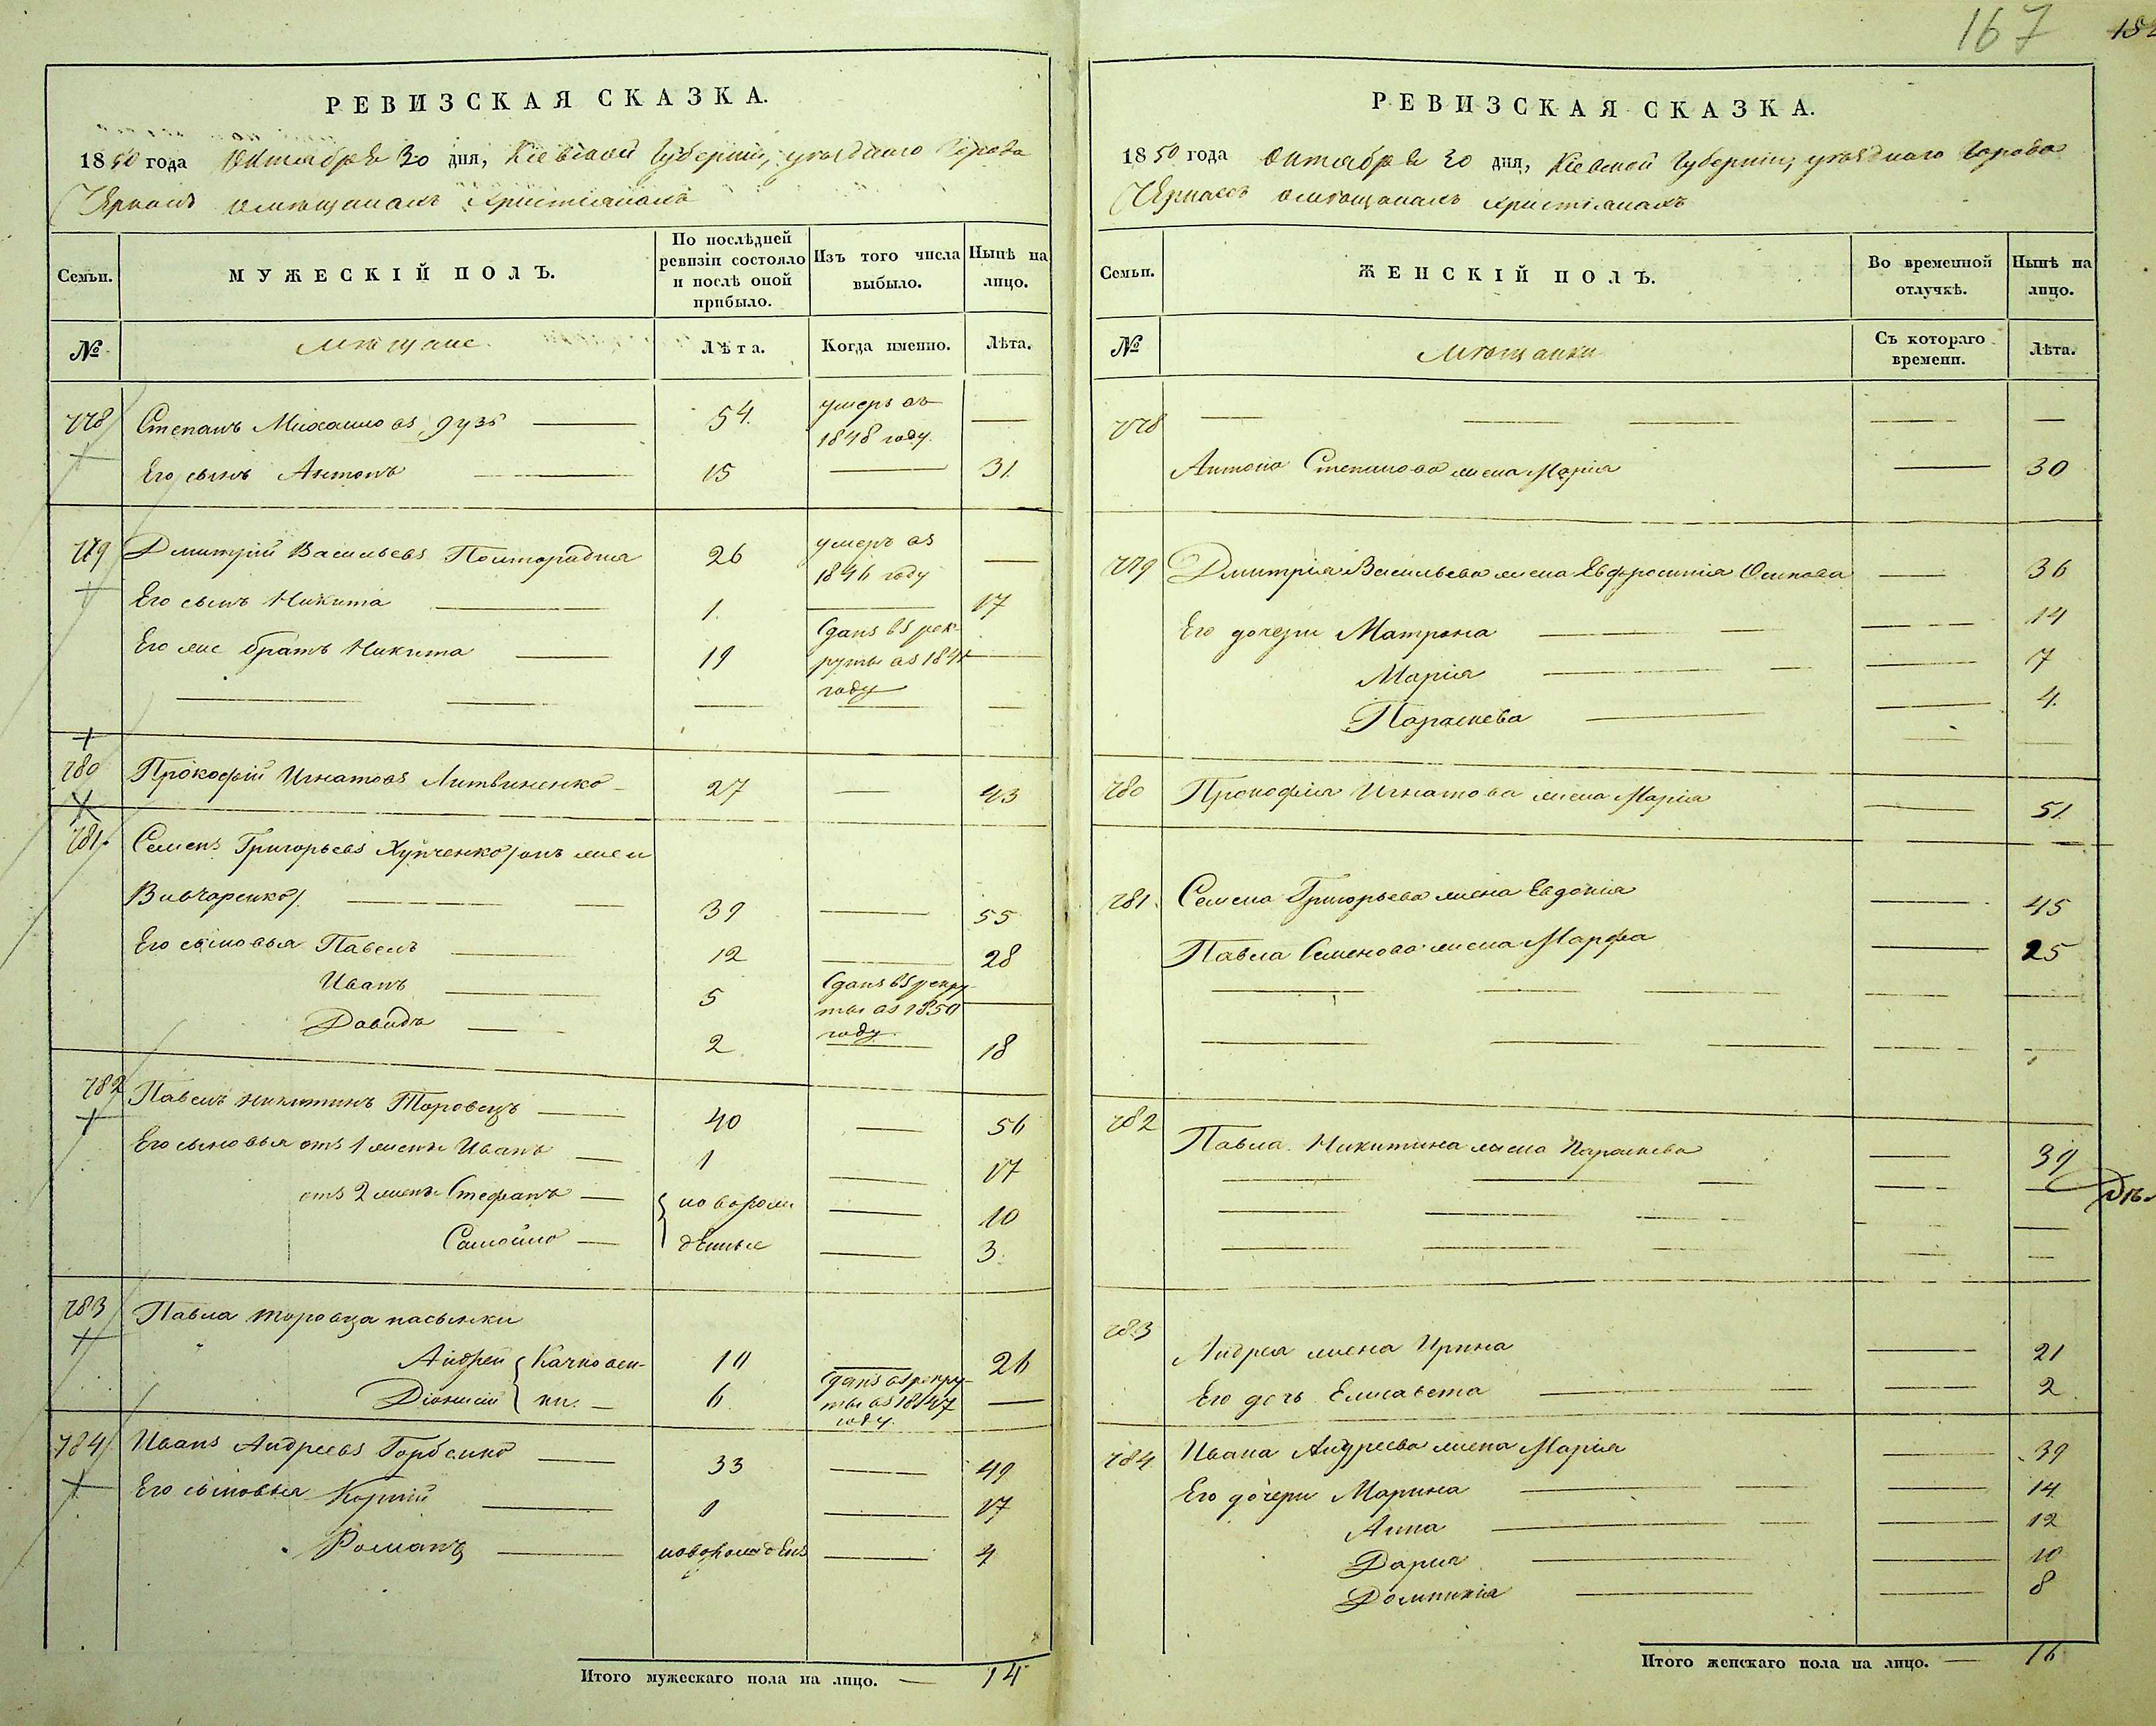 167
РЕВИЗСКАЯ СКАЗКА.
1850 года Октября 30 дня, Кіевской Губерніи, уѣзднаго Города
Черкасъ о мѣщанахъ христіанахъ
Семьи. МУЖЕСКІЙ ПОЛЪ. По послѣдней ревизіи состояло и послѣ оной прибыло. Изъ того числа выбыло. Нынѣ на лицо.
№ Мѣщане Лѣта. Когда именно. Лѣта.
778 Степанъ Михайловъ 54. умеръ въ 1848 году. —
Его сынъ Антонъ — 15 — 31.
779 Дмитрій Васильевъ 26 умеръ въ 1846 году —
Его сынъ Никита — 1. — 17
Его же братъ Никита — 19 Сданъ въ рекруты въ году —
780 Прокофій Игнатовъ Литвиненко — 27 — 43
781. Семенъ Григорьевъ Хупченко /онъ же и
Вивчаренко/. — 39 — 55
Его сыновья Павелъ — 12 — 28
Иванъ — 5 Сданъ въ рекруты въ 1850 году —
Давидъ — 2 — 18
782 Павелъ Никитинъ Торовецъ — 40 — 56
Его сыновья отъ 1 жены Иванъ — 1 — 17
отъ 2 жены Стефанъ — новорож — 10
Самойло — денные — 3.
783 Павла Торовца пасынки
Андрей Качковск- 10 — 26
Діонисій ки. — 6. Сданъ въ рекруты въ 1847 году. —
784 Иванъ Андреевъ Горбенко — 33 — 49
Его сыновья Корній — 1 — 17
Романъ — новорожденъ — 4
Итого мужескаго пола на лицо. — 14
РЕВИЗСКАЯ СКАЗКА.
1850 года Октября 30 дня, Кіевской Губерніи, уѣзднаго Города
Черкасъ о мѣщанахъ христіанахъ
Семьи. ЖЕНСКІЙ ПОЛЪ. Во временной отлучкѣ. Нынѣ на лицо.
№ Мѣщанки Съ котораго времени. Лѣта.
778 — — — — —
Антона Степанова жена Марія — 30
779 Дмитрія Васильева жена Евфросинія Осипова — 36
Его дочери Матрона — — 14
Марія — — 7
Параскева — — 4.
780 Прокофія Игнатова жена Марія — 51.
781. Семена Григорьева жена Евдокія — 45
Павла Семенова жена Марфа — 25
782 Павла Никитина жена Параскева — 39
783 Андрея жена Ирина — 21
Его дочь Елисавета — — 2
784 Ивана Андреева жена Марія — 39
Его дочери Марина — — 14
Анна — — 12
Дарья — — 10
Домникія — — 8
Итого женскаго пола на лицо. — 16